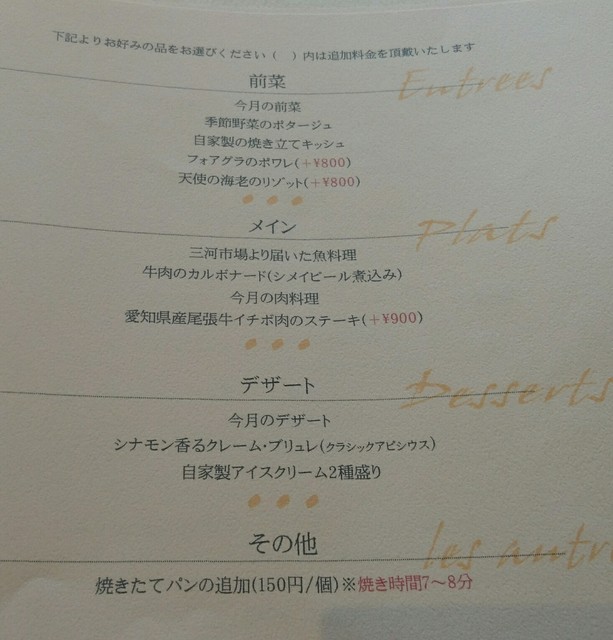 下記よりお好みの品をお選びください（　）内は追加料金を頂戴いたします
前菜
Entrees
今月の前菜
季節野菜のポタージュ
自家製の焼き立てキッシュ
フォアグラのポワレ(＋¥800)
天使の海老のリゾット(＋¥800)
メイン
Plats
三河市場より届いた魚料理
牛肉のカルボナード(シメイビール煮込み)
今月の肉料理
愛知県産尾張牛イチボ肉のステーキ(＋¥900)
デザート
Desserts
今月のデザート
シナモン香るクレーム・ブリュレ(クラシックアピシウス)
自家製アイスクリーム2種盛り
その他
les autr
焼きたてパンの追加(150円/個)※焼き時間7～8分